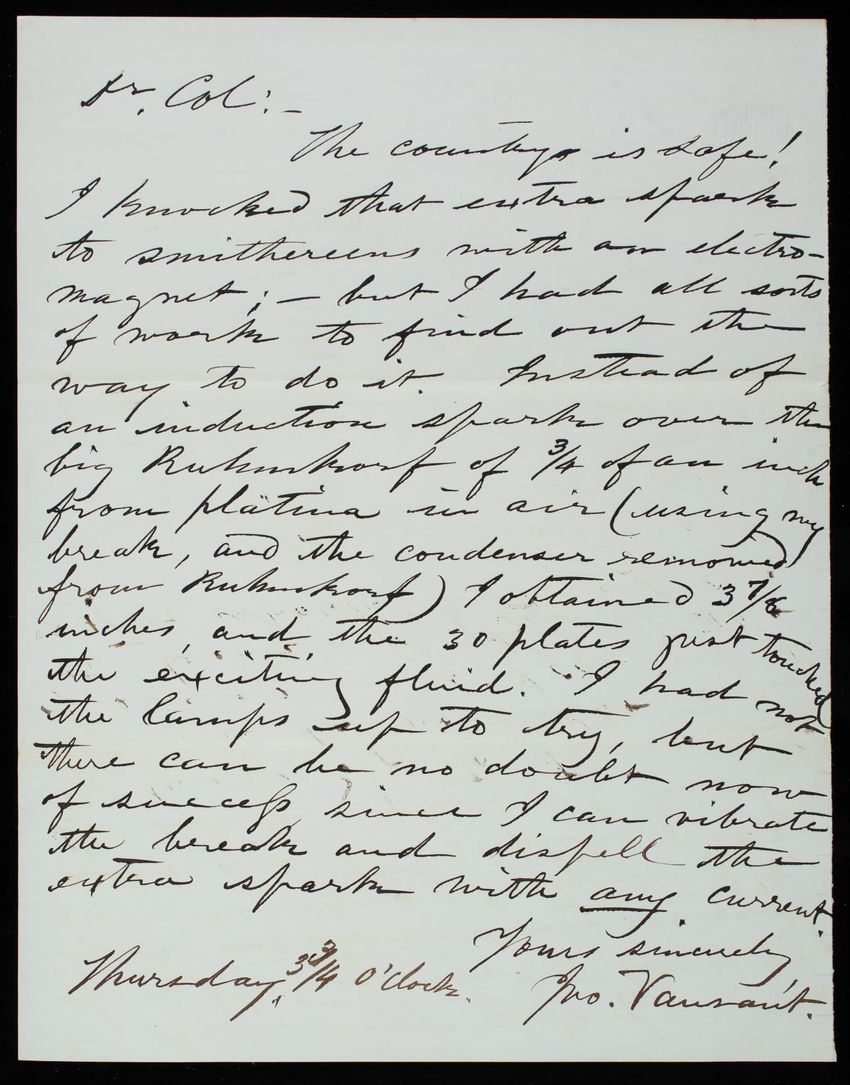 Dr. Col:—
The country is safe!
I knocked that extra spark
to smithereens with an electro-
magnet; — but I had all sorts
of work to find out the
way to do it. Instead of
an induction spark over the
big Ruhmkorf of 3/4 of an inch
from platina in air (using my
break, and the condenser removed
from Ruhmkorf) I obtained 3 7/8
inches, and the 30 plates just touched
the exciting fluid. I had not
the lamps up to try, but
there can be no doubt now
of success, since I can vibrate
the break and dispell the
extra spark with any current.
Yours sincerely
Thursday, 3 3/4 O'clock. Jno. Vansant.